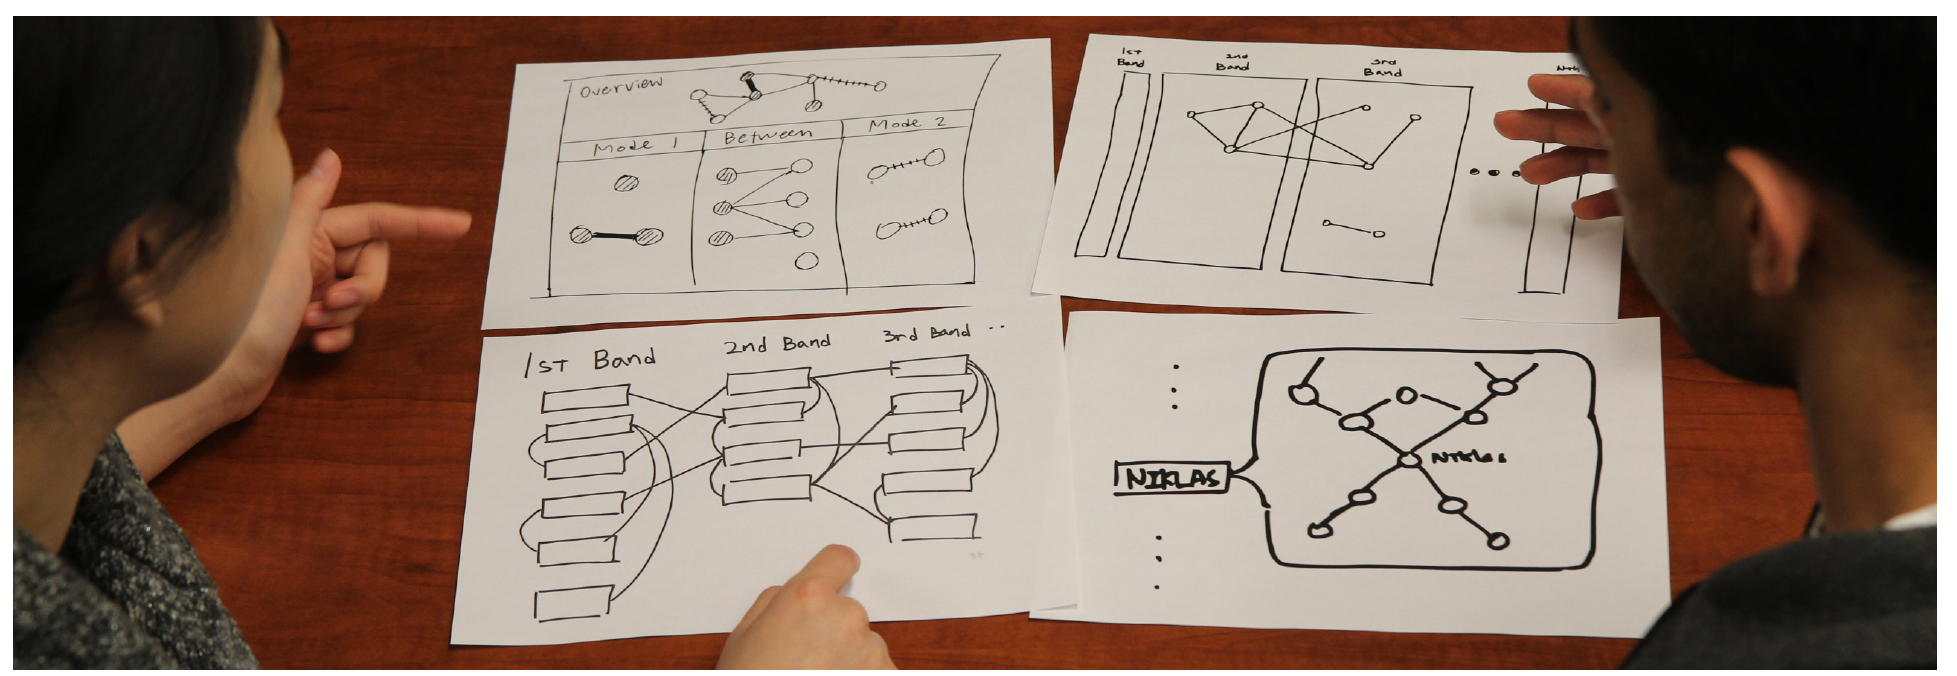 Overview
Mode 1
Between
Mode 2
1st
Band
2nd
Band
3rd
Band
1st Band
2nd Band
3rd Band ..
NIKLAS
Niklas